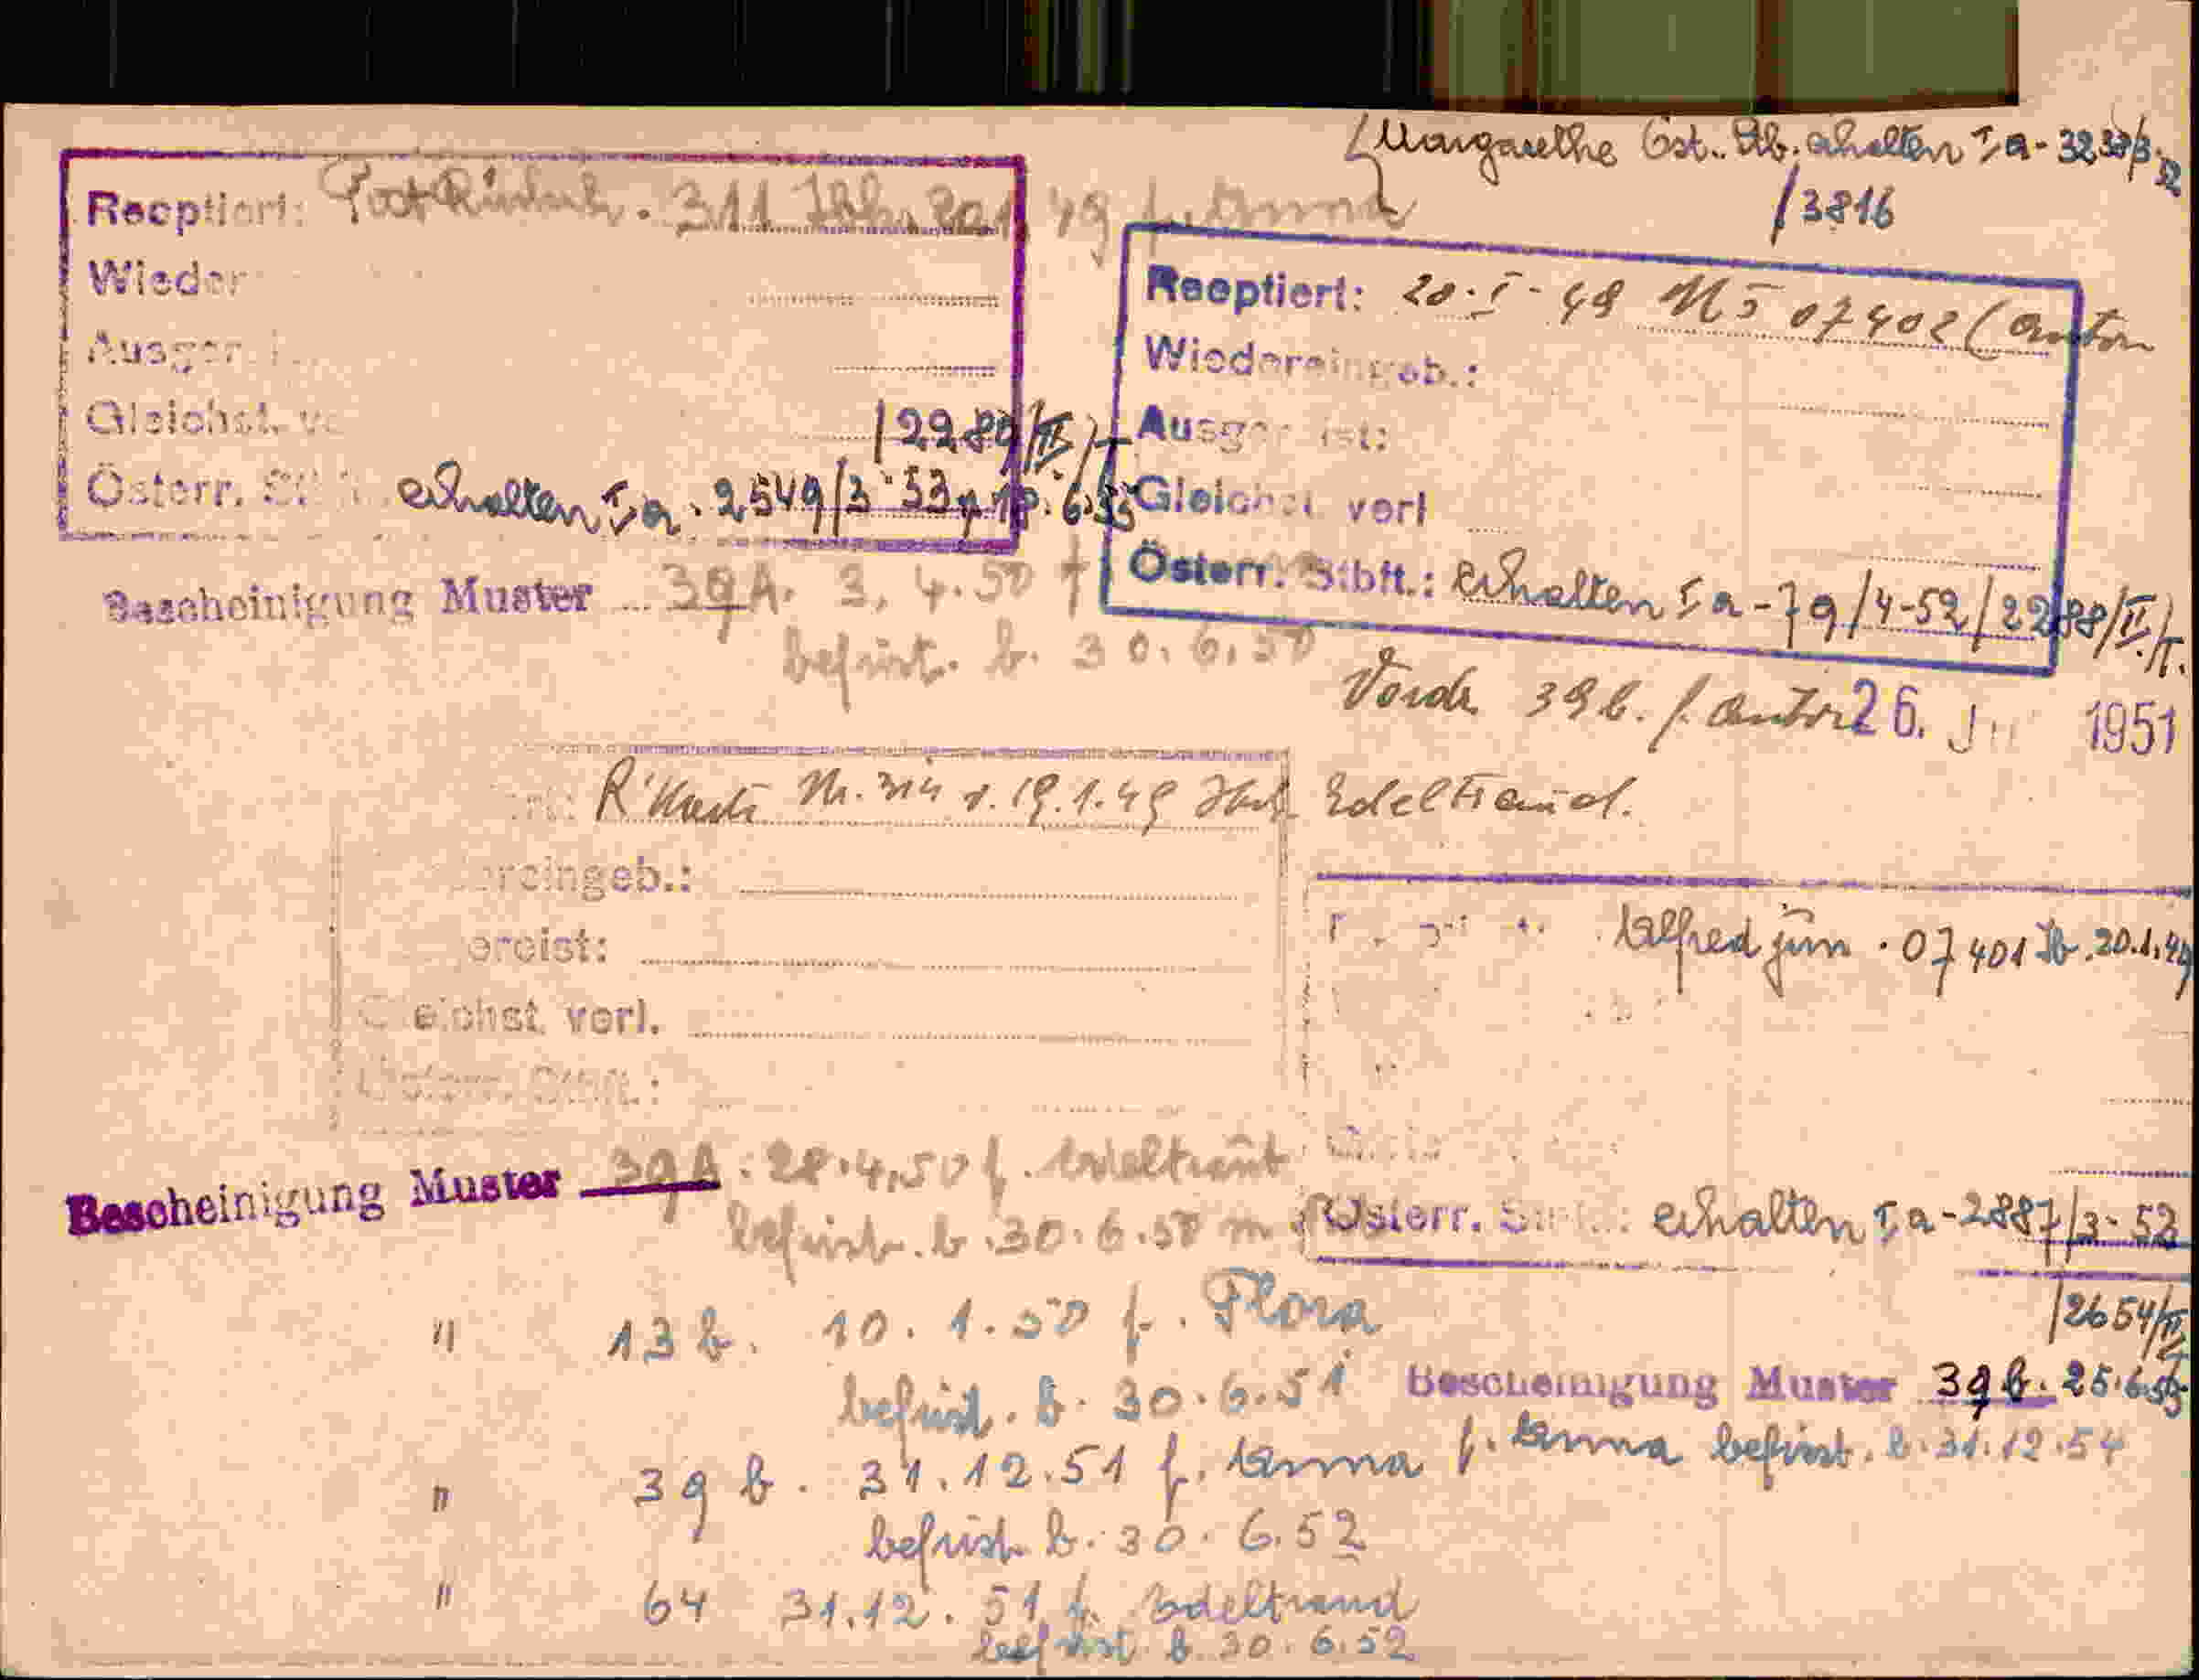 Margarethe Öst. Stb. erhalten I a - 3233/3.52
/3816
Reoptiert: 311 Ibk. 20.1.49 f. Anna
Wieder
Ausger
Gleichst. ve
/2289/II/
Österr. St erhalten I a. 2549/3-53 18.6.53
Bescheinigung Muster 39A. 3.4.50 f
befrist. b. 30.6.50
Reoptiert: 20.I-49 N5 07402 (Anton
Wiedereingeb.:
Ausger ist:
Gleichst. verl
Österr. Stbft.: erhalten I a - 79/4-52/2288/II/I.
39b. f. Anton 26. 1951
Nr. 314 v. 19.1.49 Ibk Edeltraud.
reingeb.:
ereist:
Gleichst. verl.
Österr. Stbft.:
Alfred jun. 07401 Ib. 20.1.49
Österr. erhalten I a - 2887/3-52
/2654/II
Bescheinigung Muster 39A. 28.4.50 f. Edeltraut
befrist. b. 30.6.50
" 13 b. 10.1.50 f. Flora
befrist. b. 30.6.51
Bescheinigung Muster 39 b. 25.6.53
f. Anna befrist. b. 31.12.54
" 39 b. 31.12.51 f. Anna
befrist b. 30.6.52
" 64 31.12.51 f. Edeltraud
befrist. b. 30.6.52